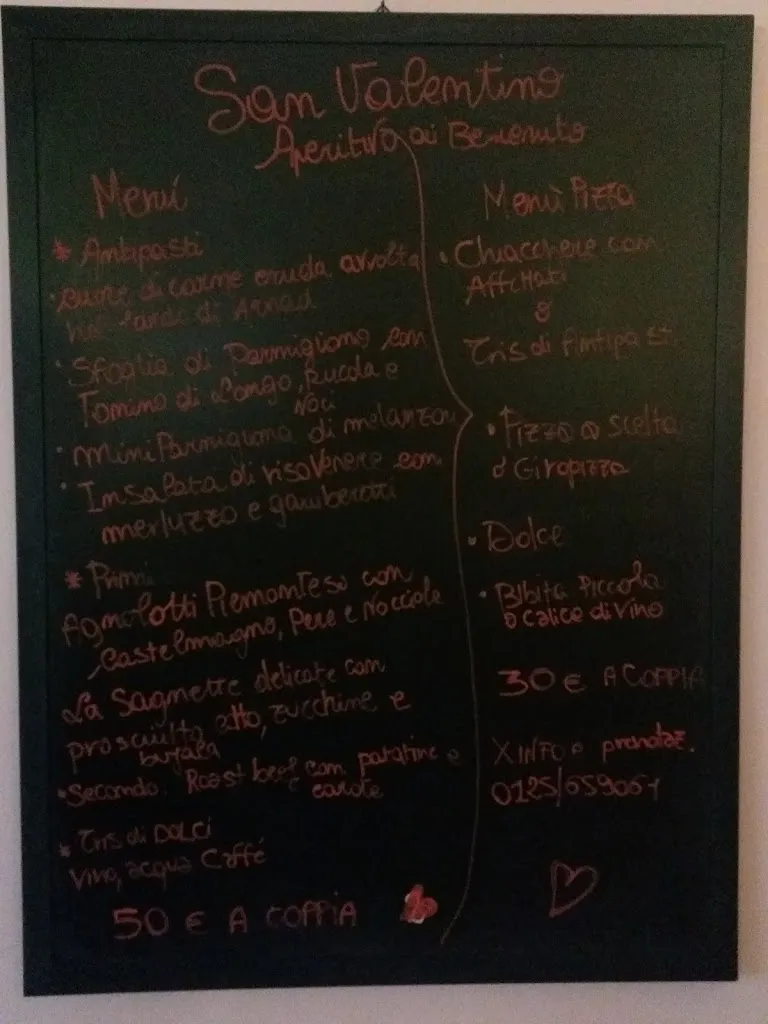 San Valentino
Aperitivo di Benvenuto
Menú
* Antipasti
· cuore di carne cruda avvolta
nel lardo di Arnad
· Sfoglia di Parmigiano con
Tomino di Longo, Rucola e
Noci
· mini Parmigiana di melanzane
· Insalata di riso Venere con
merluzzo e gamberetti
* Primi
Agnolotti Piemontesi con
Castelmagno, Pere e Nocciole
La Sagnette delicate con
prosciutto cotto, zucchine e
bufala
· Secondo: Roast beef con patatine e
carote
* Tris di DOLCI
Vino, acqua Caffé
50 € A COPPIA
Menù Pizza
· Chiacchere con
Affettati
o
Tris di Antipasti
· Pizza a scelta
o Giropizza
· Dolce
· Bibita Piccola
o calice di Vino
30 € A COPPIA
X INFO e prenotaz.
0125/659061